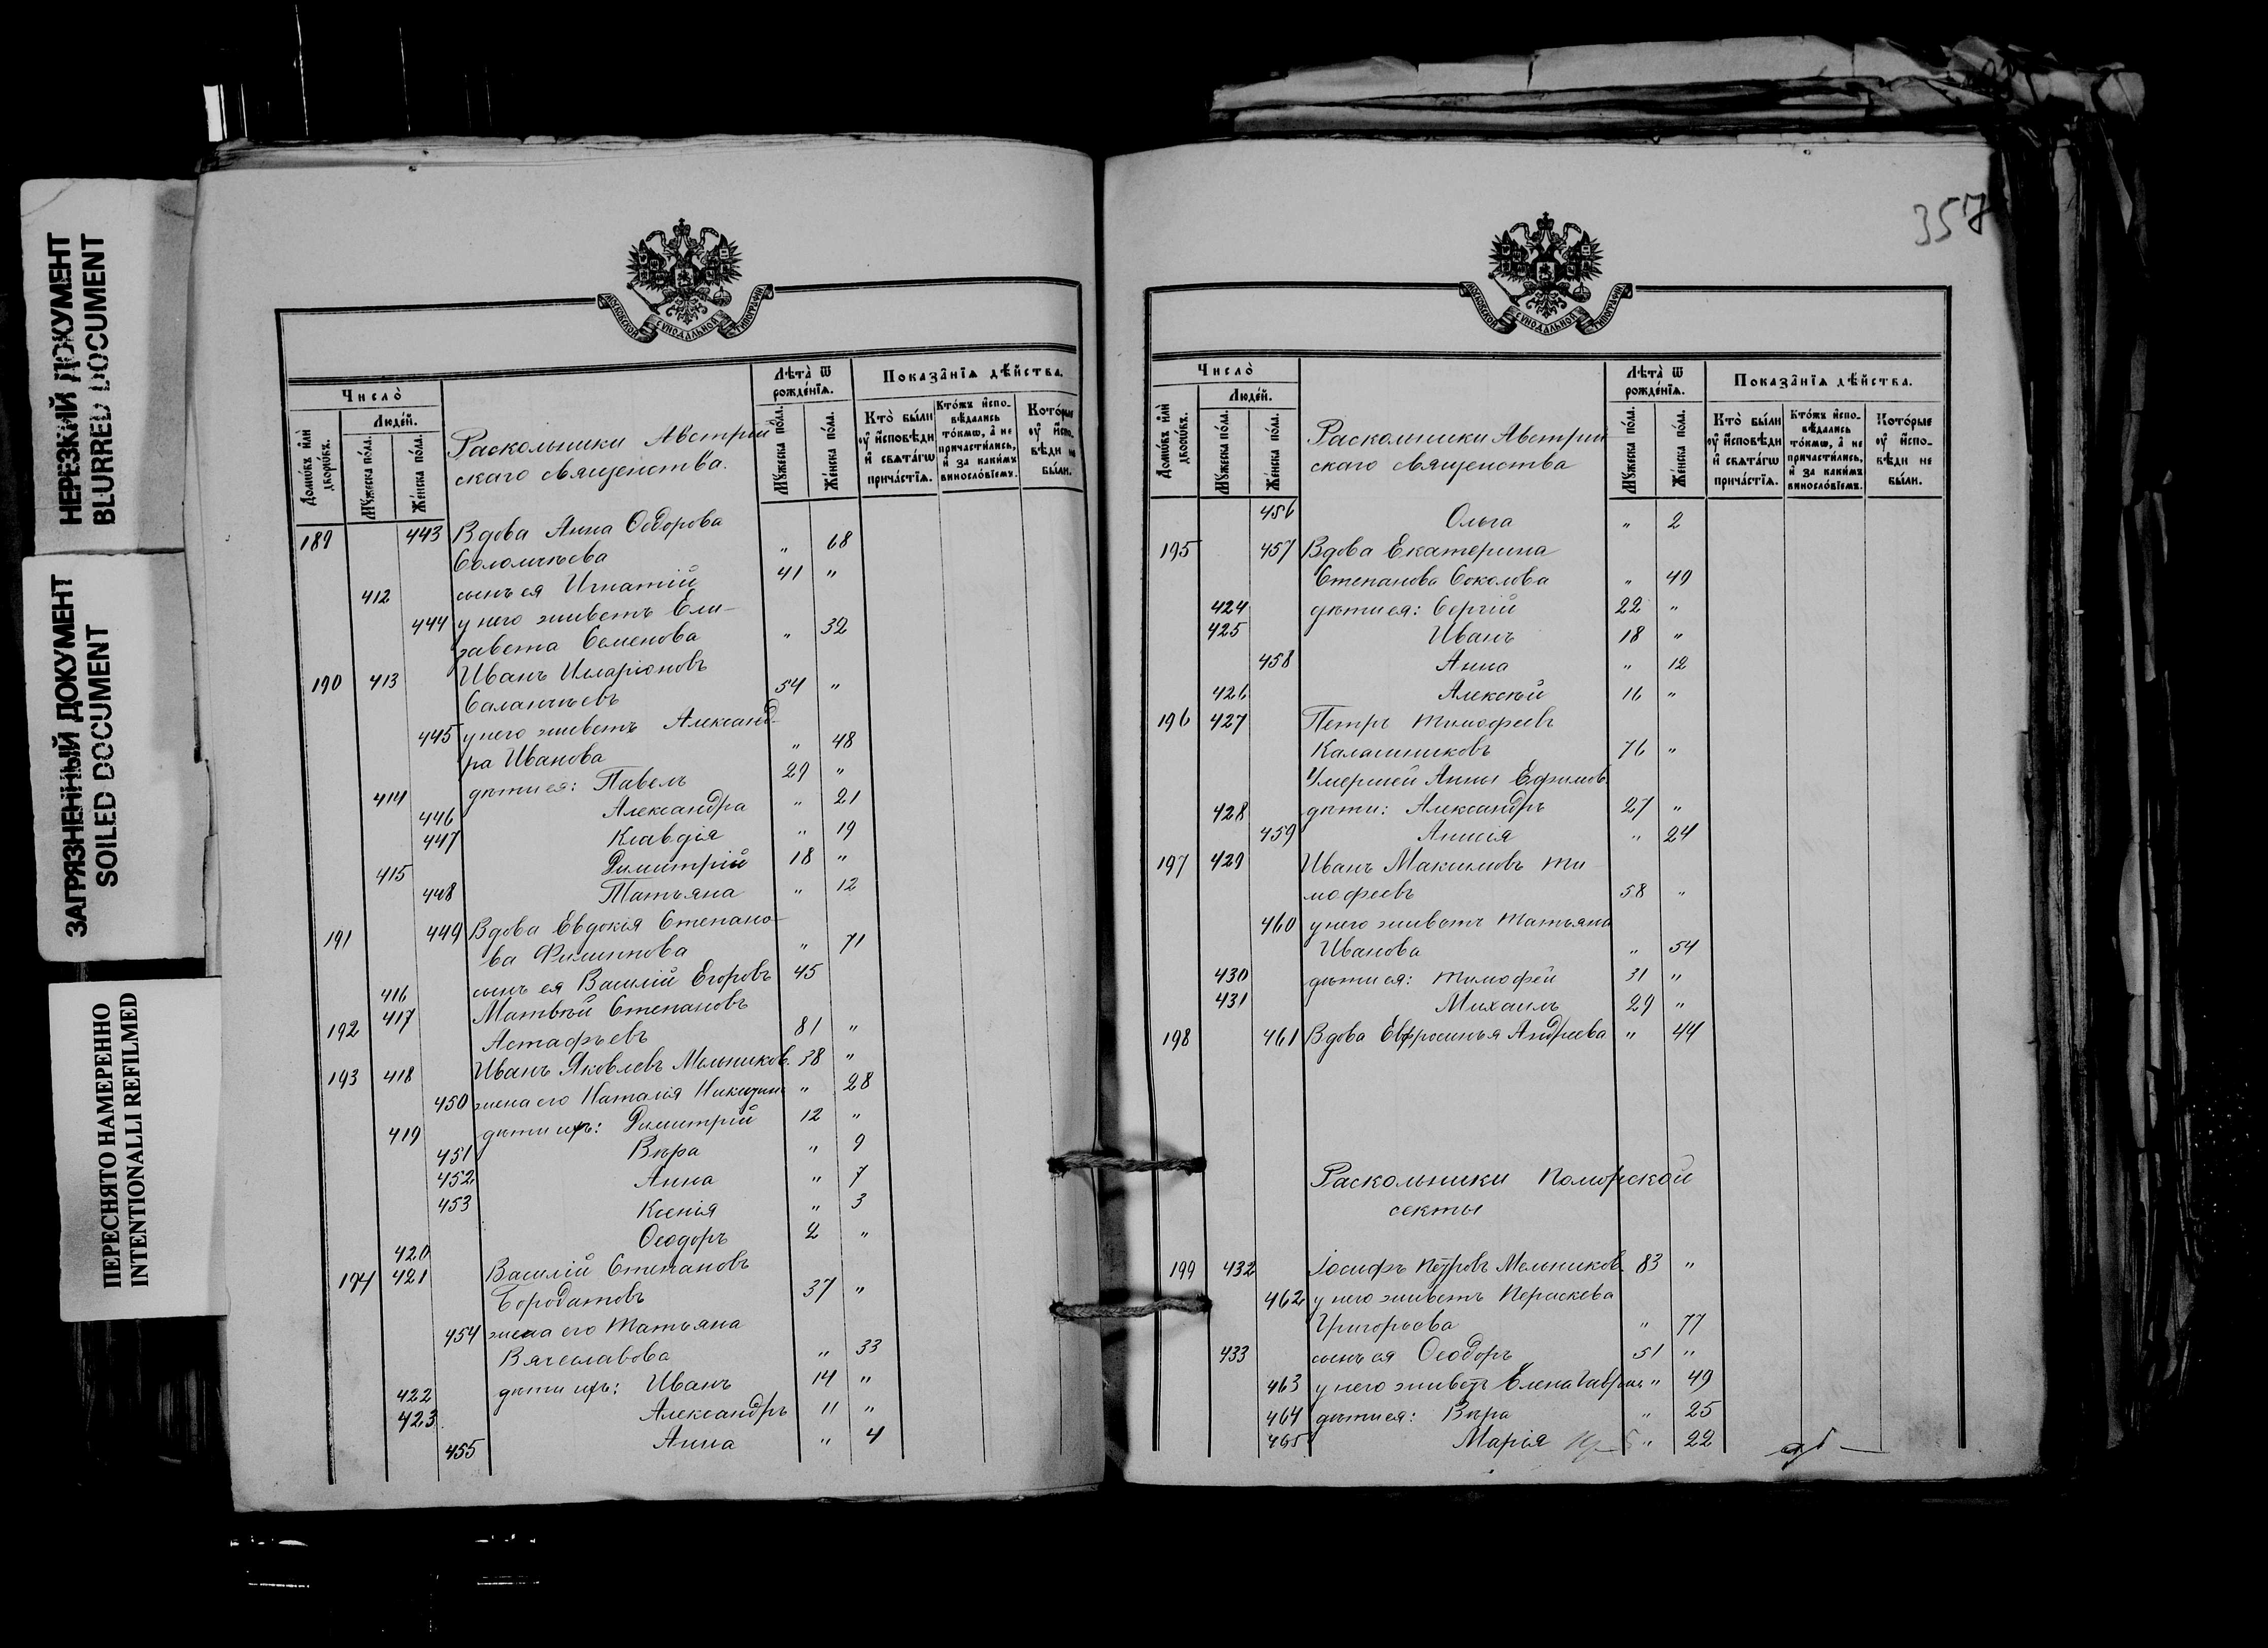 НЕРЕЗКИЙ ДОКУМЕНТ
BLURRED DOCUMENT
ЗАГРЯЗНЕННЫЙ ДОКУМЕНТ
SOILED DOCUMENT
ПЕРЕСНЯТО НАМЕРЕННО
INTENTIONALLI REFILMED
МОСКОВСКОЙ СѴНОДАЛЬНОЙ ТИПОГРАФІИ
Число̀
Домѡ́въ и҆лѝ дворѡ́въ.
Люде́й.
Мꙋ́жеска по́ла.
Же́нска по́ла.
Раскольники Австрій
скаго священства.
Лѣта̀ ѿ рожде́нїѧ.
Мꙋ́жеска по́ла.
Же́нска по́ла.
Показа̑нїѧ дѣ́йства.
Кто̀ бы́ли ᲂу҆ и҆сповѣ́ди и҆ свѧта́гѡ прича́стїѧ.
Кто́жъ и҆сповѣ́дались то́кмѡ, а҆ не причасти́лись, и҆ за каки́мъ виносло́вїемъ.
Кото́рые ᲂу҆ и҆сповѣ́ди не бы́ли.
189 443 Вдова Анна Ѳедорова
" 68
412 сынъ ея Игнатій 41 "
444 у него живетъ Ели-
завета Семенова " 32
190 413 Иванъ Иларіоновъ
Саланчьевъ 54 "
445 у него живетъ Александ-
ра Иванова " 48
414 дѣти ея: Павелъ 29 "
446 Александра " 21
447 Клавдія " 19
415 Димитрій 18 "
448 Татьяна " 12
191 449 Вдова Евдокія Степано-
ва Филиппова " 71
416 сынъ ея Василій Егоровъ 45
192 417 Матвѣй Степановъ
Астафьевъ 81 "
193 418 Иванъ Яковлевъ Мельников. 38 "
450 жена его Наталія " 28
419 дѣти ихъ: Димитрій 12 "
451 Вѣра " 9
452 Анна " 7
453 Ксенія " 3
420 Ѳеодоръ 2 "
194 421 Василій Степановъ
Бородатовъ 37 "
454 жена его Татьяна
Вячеславова " 33
422 дѣти ихъ: Иванъ 14 "
423 Александръ 11 "
455 Анна " 4
357
МОСКОВСКОЙ СѴНОДАЛЬНОЙ ТИПОГРАФІИ
Число̀
Домѡ́въ и҆лѝ дворѡ́въ.
Люде́й.
Мꙋ́жеска по́ла.
Же́нска по́ла.
Раскольники Австрій
скаго священства
Лѣта̀ ѿ рожде́нїѧ.
Мꙋ́жеска по́ла.
Же́нска по́ла.
Показа̑нїѧ дѣ́йства.
Кто̀ бы́ли ᲂу҆ и҆сповѣ́ди и҆ свѧта́гѡ прича́стїѧ.
Кто́жъ и҆сповѣ́дались то́кмѡ, а҆ не причасти́лись, и҆ за каки́мъ виносло́вїемъ.
Кото́рые ᲂу҆ и҆сповѣ́ди не бы́ли.
456 Ольга " 2
195 457 Вдова Екатерина
Степанова Соколова " 49
424 дѣти ея: Сергій 22 "
425 Иванъ 18 "
458 Анна " 12
426 Алексѣй 16 "
196 427 Петръ Тимофеевъ
Калашниковъ 76 "
Умершей Анны Ефимов
428 дѣти: Александръ 27 "
459 Анисія " 24
197 429 Иванъ Максимовъ Ти
мофеевъ 58 "
460 у него живетъ Татьяна
Иванова " 54
430 дѣти ея: Тимофей 31 "
431 Михаилъ 29 "
198 461 Вдова Евфросинья Андреева " 44
Раскольники Поморской
секты
199 432 Іосифъ Петровъ Мельников. 83 "
462 у него живетъ Пераскева
Григорьева " 77
433 сынъ ея Ѳеодоръ 51 "
463 у него живетъ Елена Гаврил. " 49
464 дѣти ея: Вѣра " 25
465 Марія " 22